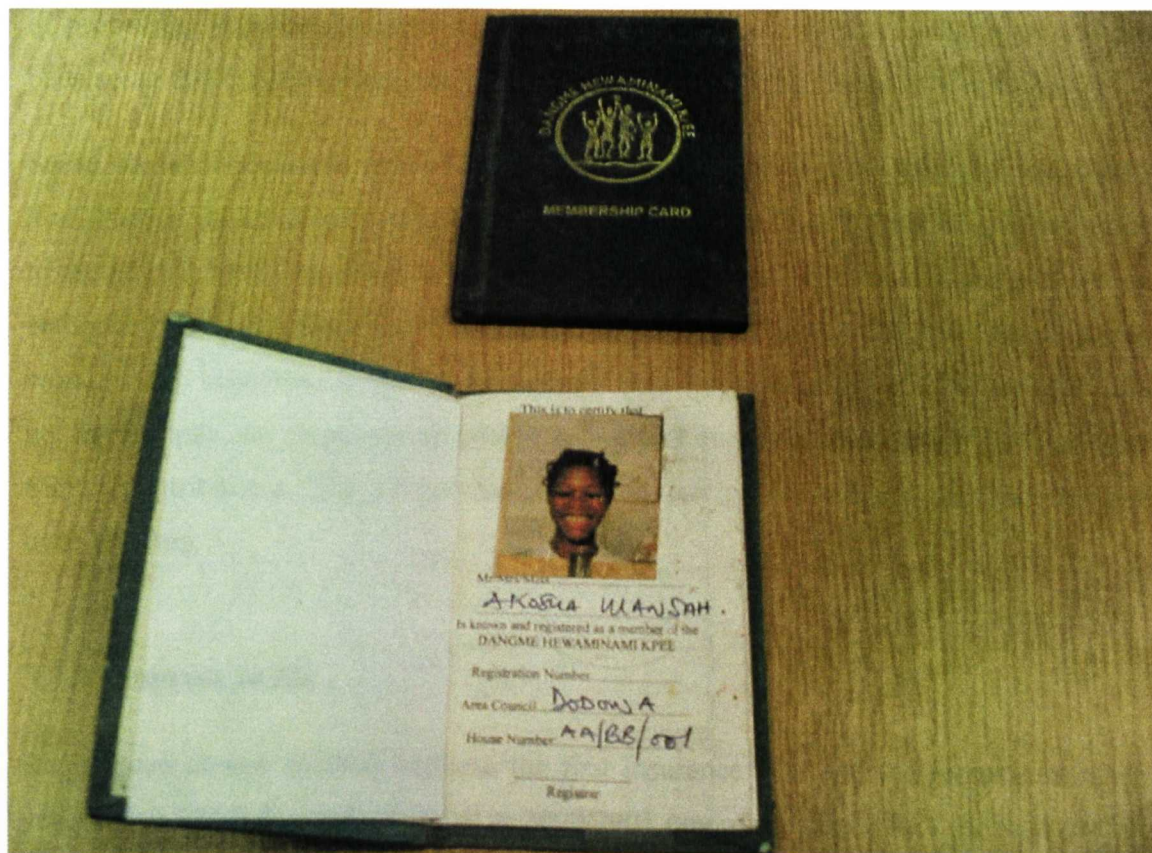 DANGME HEWAMINAMI KPEE
MEMBERSHIP CARD
This is to certify that
Mr/Mrs/Miss
AKOSUA MANSAH.
Is known and registered as a member of the
DANGME HEWAMINAMI KPEE
Registration Number
Area Council DODOWA
House Number AA/BB/001
Registrar